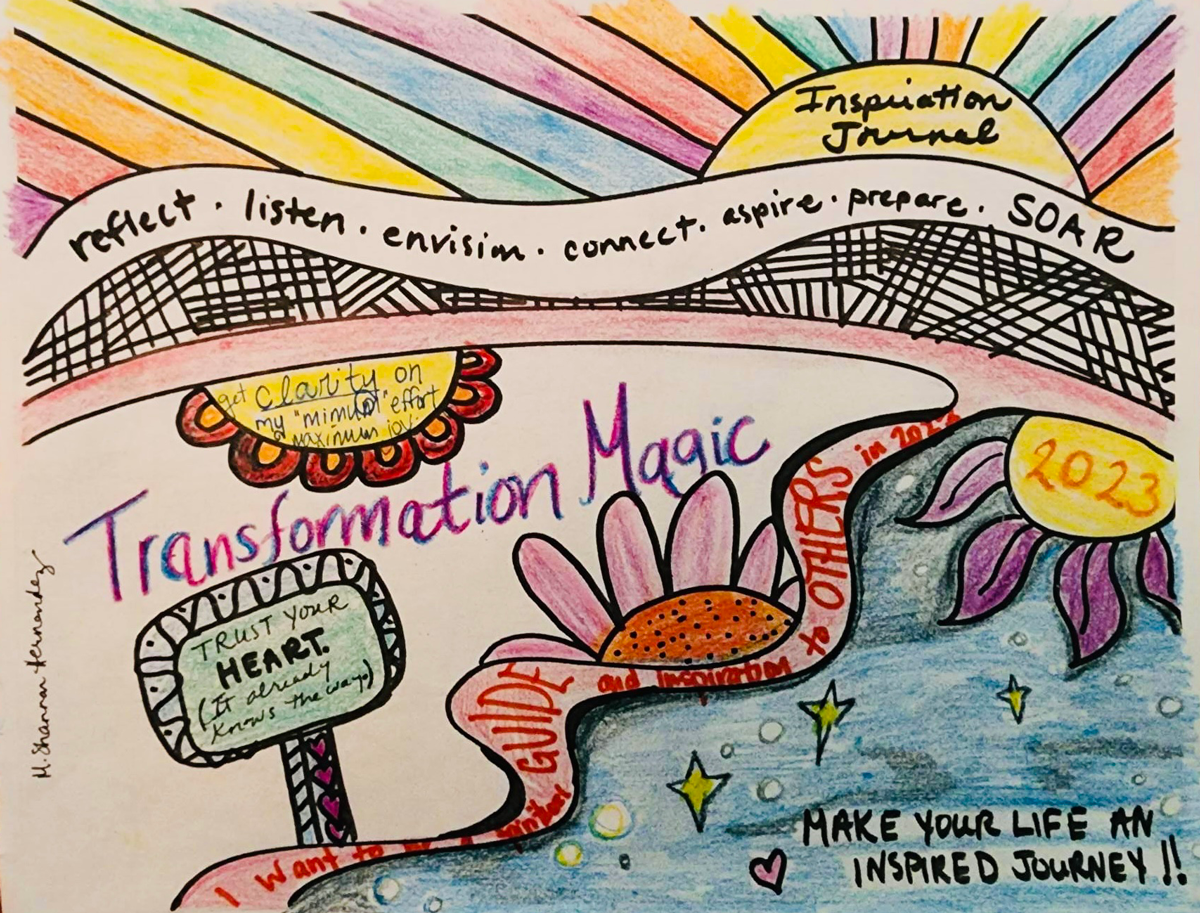 Inspiration
Journal
reflect · listen · envision · connect · aspire · prepare · SOAR
get clarity on
my "mimum" effort
maximum joy.
Transformation Magic
2023
TRUST YOUR
HEART.
(It already
knows the way)
I want to be a GUIDE and inspiration to OTHERS in
MAKE YOUR LIFE AN
INSPIRED JOURNEY!!
M. Shannon Hernandez